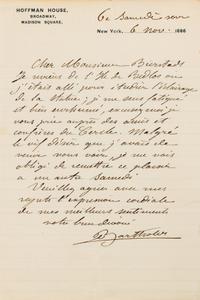 HOFFMAN HOUSE,
BROADWAY,
MADISON SQUARE,
Ce Samedi soir
New York, 6 Nov. 1886
Cher Monsieur Bierstadt
Je reviens de l'Ile de Bedloe où
j'étais allé pour étudier l'éclairage
de la Statue; je me sens fatigué
et bien souffrant, excusez moi je
vous prie auprès des amis et
confrères du Cercle. Malgré
le vif désir que j'avais de
venir vous voir je me vois
obligé de remettre ce plaisir
à un autre Samedi
Veuillez agréer avec mes
regrets l'expression cordiale
de mes meilleurs sentiments
votre bien dévoué
Bartholdi